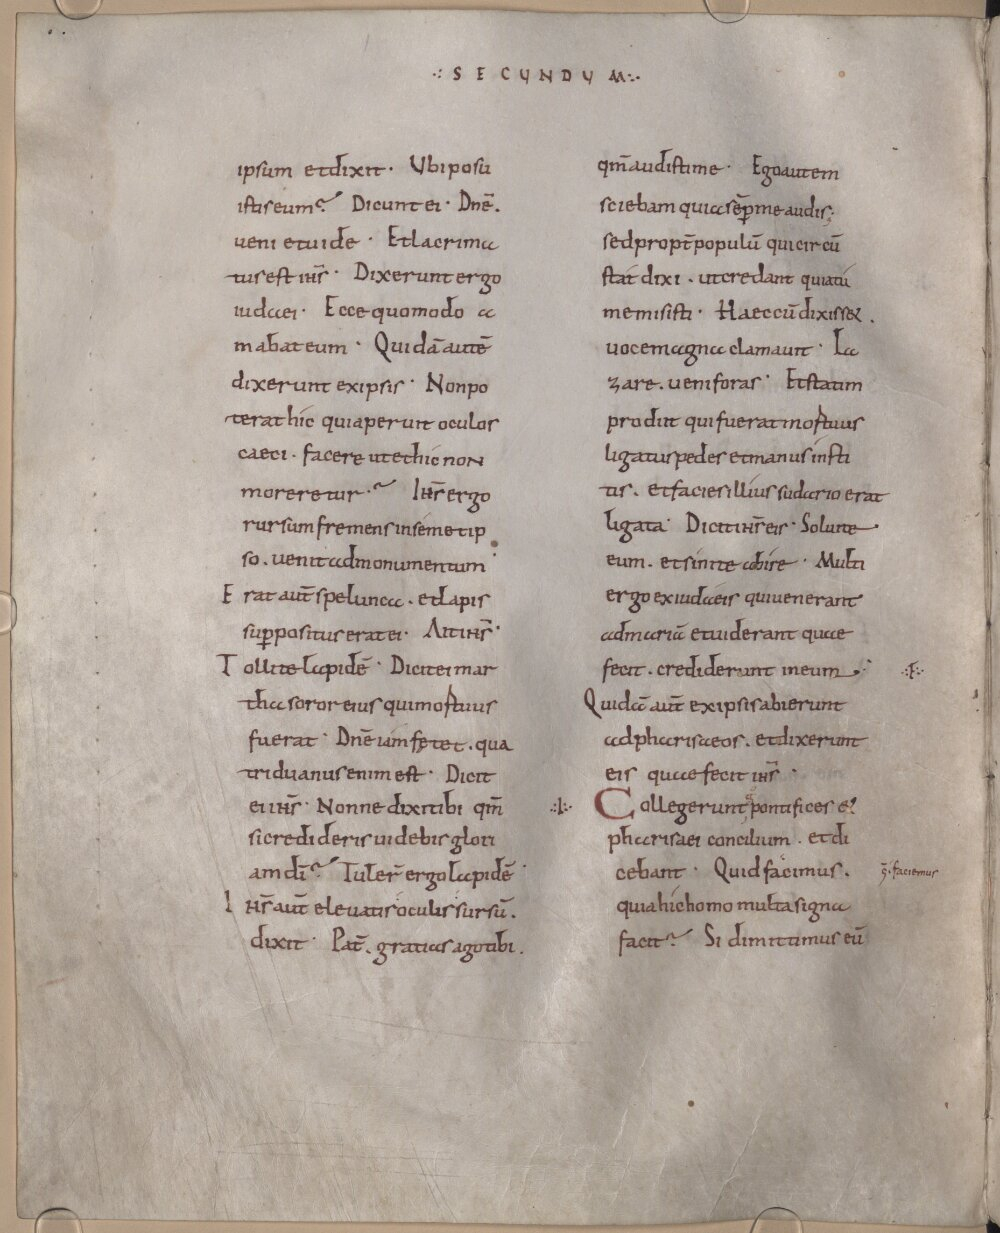 ·: SECUNDUM :·
ipsum et dixit · Ubi posu
istis eum? Dicunt ei · Dñe.
veni et vide · Et lacrima
tus est ihs̄ · Dixerunt ergo
iudaei · Ecce quomodo a
mabat eum · Quidā autē
dixerunt ex ipsis · Non po
terat hic qui aperuit oculos
caeci · facere ut et hic non
moreretur ·? Ihs̄ ergo
rursum fremens in semetip
so . venit ad monumentum ·
Erat aut̄ spelunca . et lapis
sup̱positus erat ei · Ait ihs̄ ·
Tollite lapidē · Dicit ei mar
tha soror eius qui mortuus
fuerat · Dñe iam fętet . qua
triduanus enim est · Dicit
ei ihs̄ · Nonne dixi tibi qm̄
si credideris videbis glori
am dī? Tuler̄ ergo lapidē ·
Ihs̄ aut̄ elevatis oculis sursū .
dixit · Pat̄ . gratias ago tibi .
qm̄ audisti me · Ego autem
sciebam quia sēp̱ me audis;
sed propt̄ populū qui circū
stat dixi . ut credant quia tu
me misisti · Haec cū dixisset .
voce magna clamavit · La
zare . veni foras · Et statim
prodiit qui fuerat mortuus
ligatus pedes et manus insti
tis . et facies illius sudario erat
ligata · Dicit ihs̄ eis · Solvite
eum . et sinite abire · Multi
ergo ex iudaeis qui venerant
ad mariā et viderant quae
fecit . crediderunt in eum . ·:f:·
Quidā aut̄ ex ipsis abierunt
ad pharisaeos . et dixerunt
eis quae fecit ihs̄ ·
·:l:· Collegerunt pontifices et
pharisaei concilium . et di
cebant · Quid facimus . faciemus
quia hic homo multa signa
facit? Si dimittimus eū